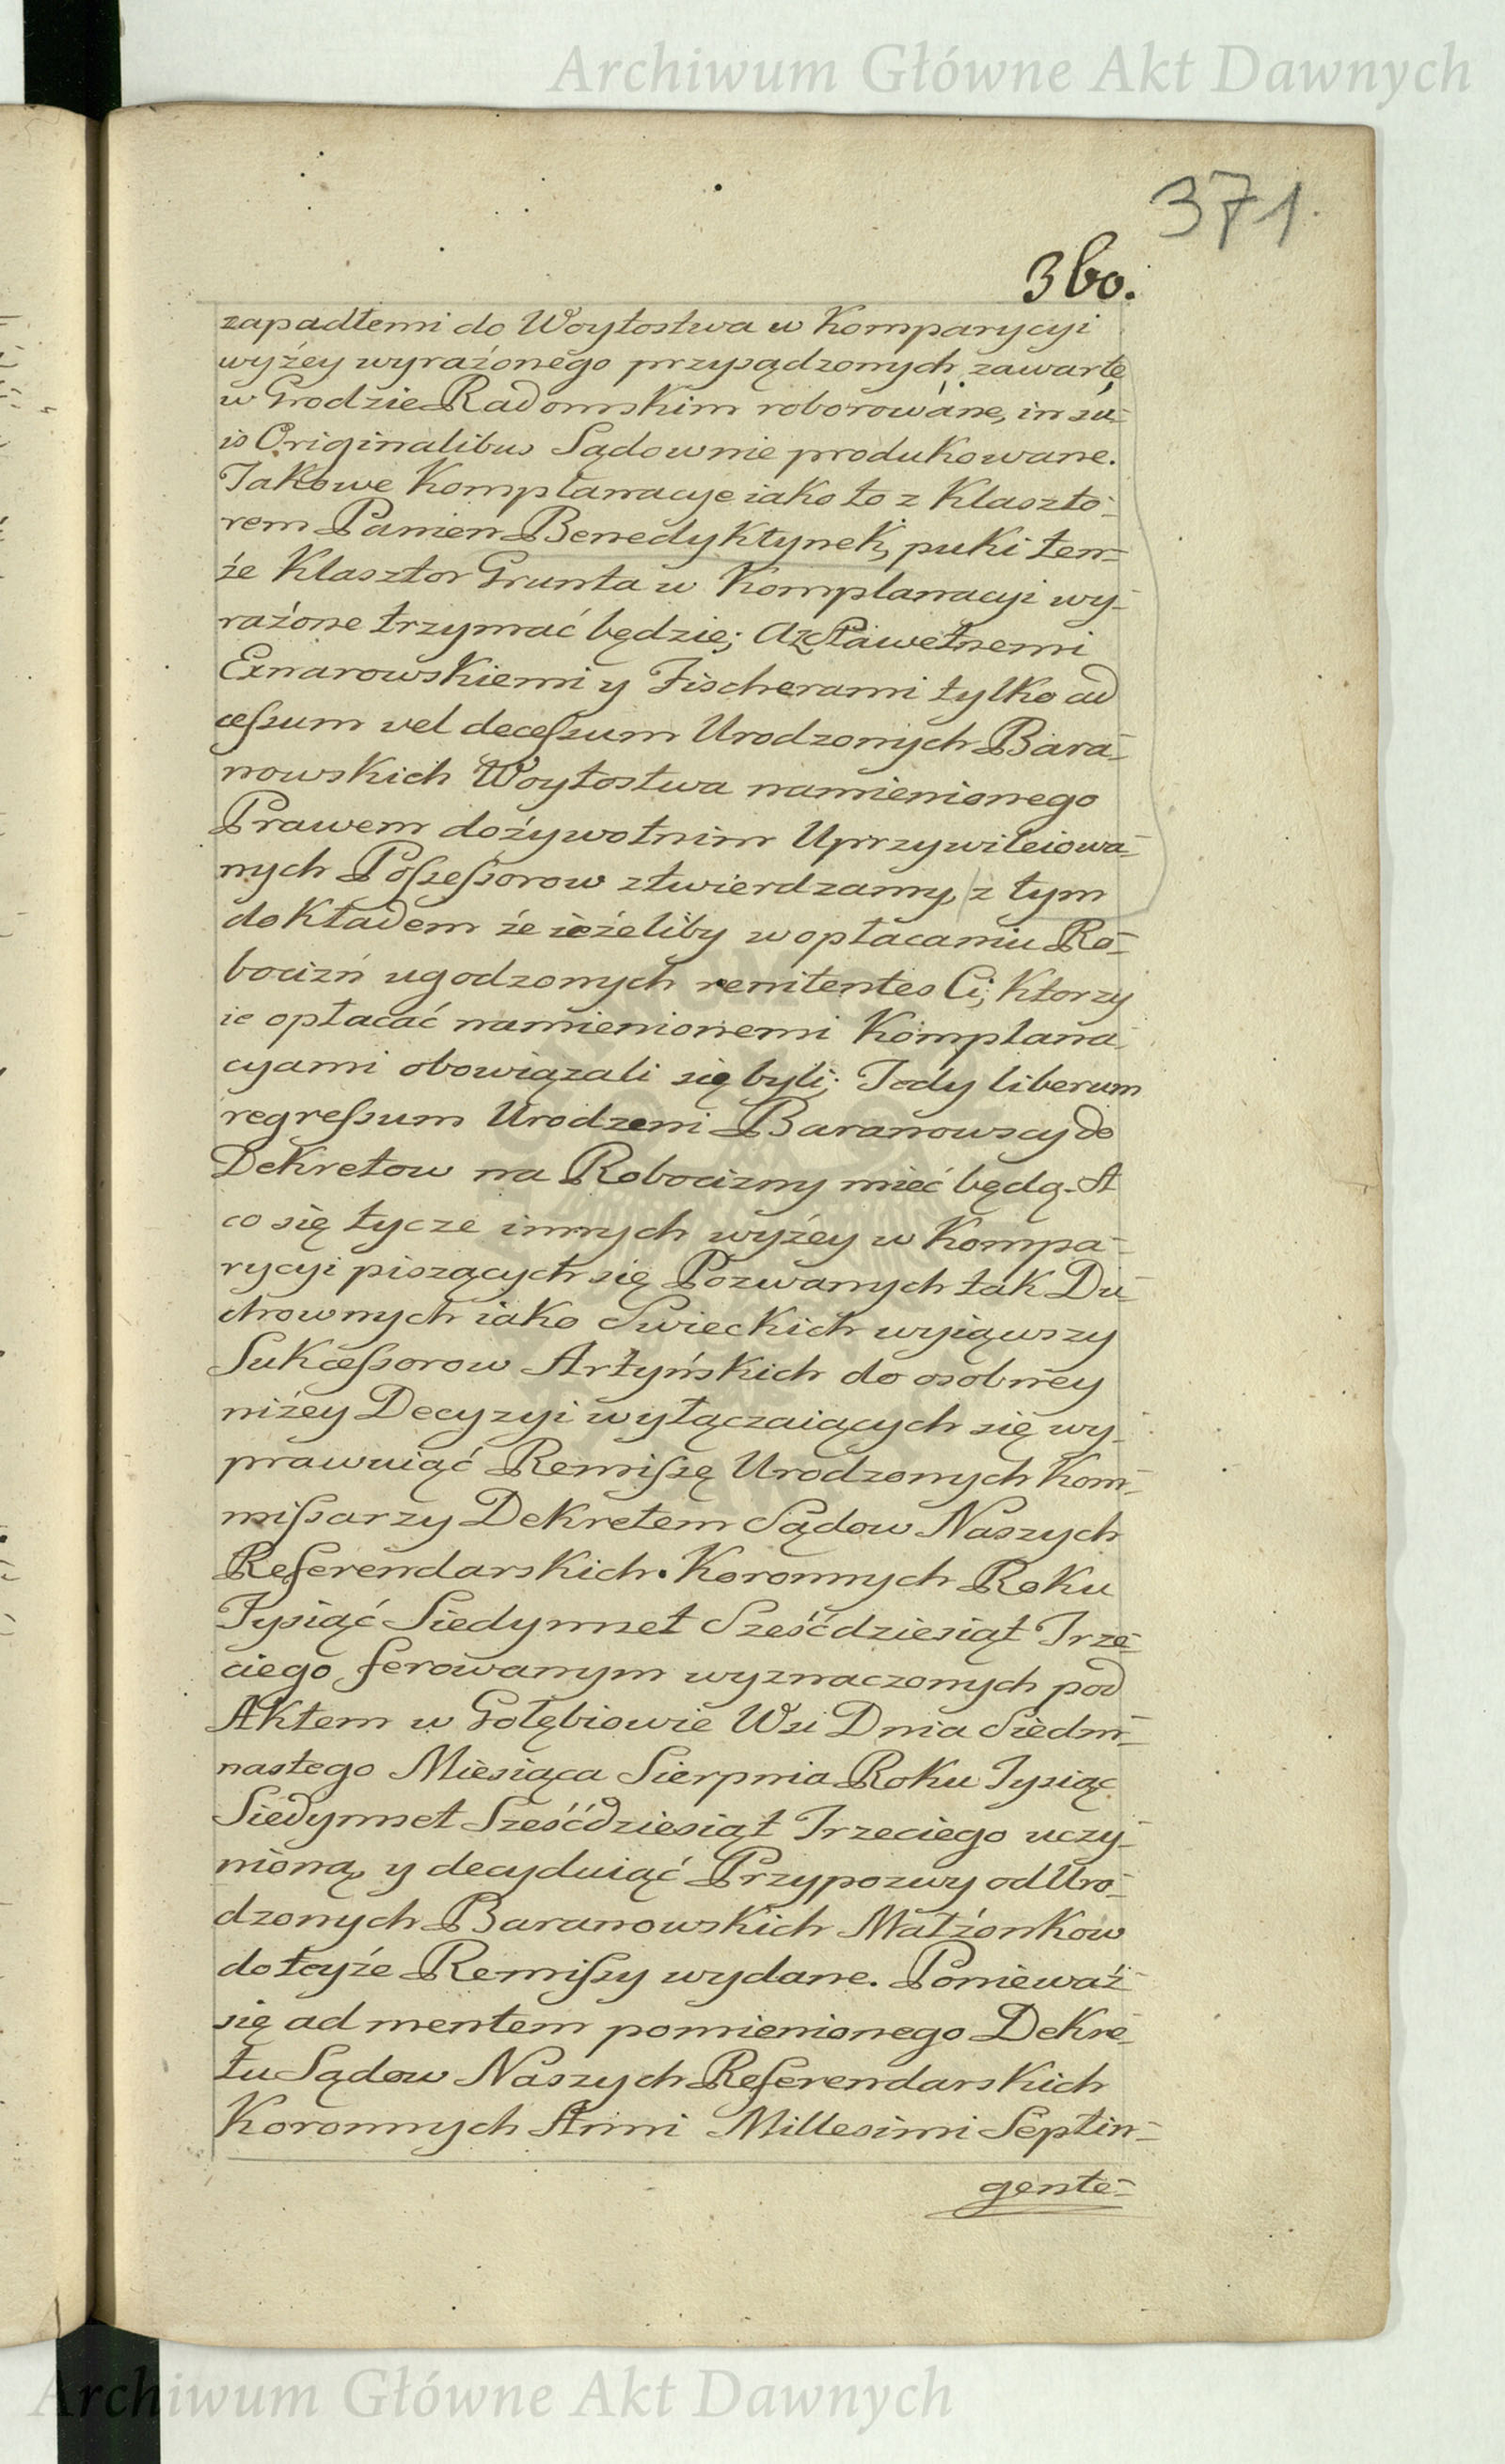 Archiwum Główne Akt Dawnych
371.
360.
zapadłemi do Woytostwa w Komparycyi
wyżey wyrażonego przysądzonych zawarte
w Grodzie Radomskim roborowane, in su-
is Originalibus Sądownie produkowane.
Takowe Komplanacye iako to z Klaszto-
rem Panien Benedyktynek, puki ten-
że Klasztor Grunta w Komplanacyi wy-
rażone trzymać będzie; Az Sławetnemi
Exnarowskiemi y Fischerami tylko ad
cessum vel decessum Urodzonych Bara-
nowskich Woytostwa namienionego
Prawem dożywotnim Uprzywileiowa-
nych Possessorow ztwierdzamy, z tym
dokładem że ieżeliby w opłacaniu Ro-
bocizn ugodzonych renitentes Ci, Ktorzy
ie opłacać namienionemi Komplana-
cyami obowiązali się byli; Tedy liberum
regressum Urodzeni Baranowscy do
Dekretow na Robocizny mieć będą. A
co się tycze innych wyżey w Kompa-
rycyi piszących się Pozwanych tak Du-
chownych iako Swieckich wyiąwszy
Sukcessorow Artyńskich do osobney
niżey Decyzyi wyłączaiących się wy-
prawuiąć Remissę Urodzonych Kom-
missarzy Dekretem Sądow Naszych
Referendarskich Koronnych Roku
Tysiąć Siedymset Sześćdziesiąt Trze-
ciego ferowanym wyznaczonych pod
Aktem w Gołębiowie Wsi Dnia Siedm-
nastego Miesiąca Sierpnia Roku Tysiąc
Siedymset Sześćdziesiąt Trzeciego uczy-
nioną, y decyduiąć Przypozwy od Uro-
dzonych Baranowskich Małżonkow
do teyże Remissy wydane. Ponieważ
się ad mentem pomienionego Dekre-
tu Sądow Naszych Referendarskich
Koronnych Anni Millesimi Septin-
gente-
Archiwum Główne Akt Dawnych